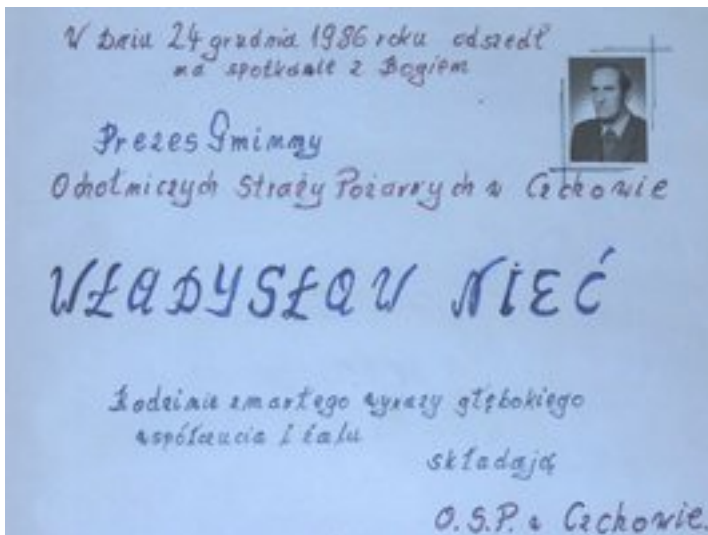 W dniu 24 grudnia 1986 roku odszedł
na spotkanie z Bogiem
Prezes Gminny
Ochotniczych Straży Pożarnych w Czchowie
WŁADYSŁAW NIEĆ
Rodzinie zmarłego wyrazy głębokiego
współczucia i żalu
składają
O.S.P. w Czchowie.